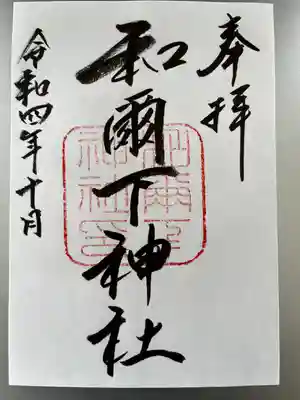 奉拝
和爾下神社
令和四年十月